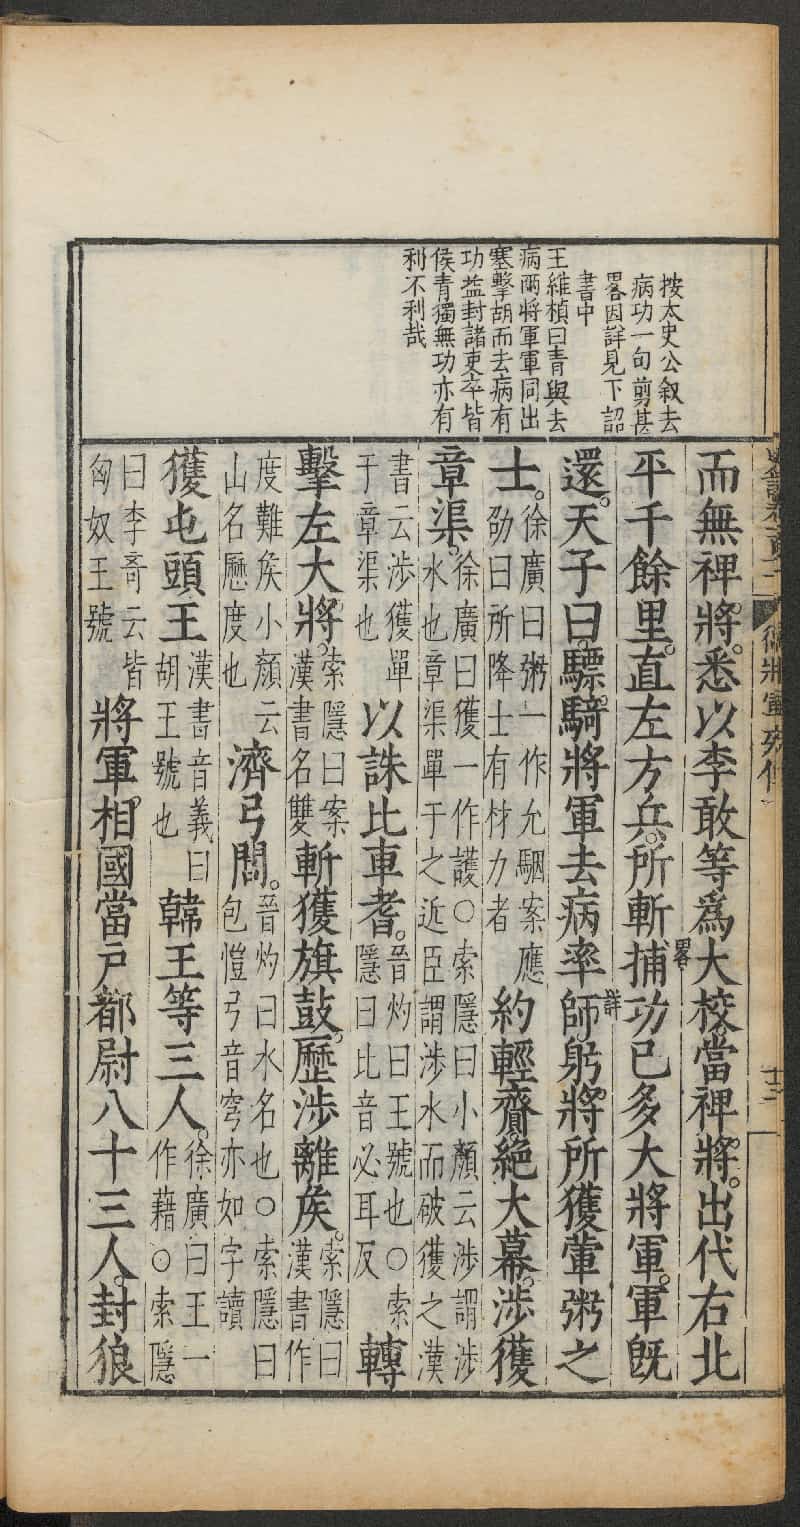 按太史公敘去
病功一句剪甚
畧因詳見下詔
書中
王維楨曰青與去
病兩將軍軍同出
塞擊胡而去病有
功益封諸吏卒皆
侯青獨無功亦有
利不利哉
衛將軍列傳
十二
而無裨將。悉以李敢等爲大校。當裨將。出代右北
畧
平千餘里。直左方兵。所斬捕功已多大將軍。軍旣
詳
還。天子曰。驃騎將軍去病率師。躬將所獲葷粥之
士。徐廣曰粥一作允駰案應
劭曰所降士有材力者
約輕齎。絕大幕。涉獲
章渠。徐廣曰獲一作護○索隱曰小顏云涉謂涉
水也章渠單于之近臣謂涉水而破獲之漢
書云涉獲單
于章渠也
以誅比車耆。晉灼曰王號也○索
隱曰比音必耳反
轉
擊左大將。索隱曰案
漢書名雙
斬獲旗鼓。歷涉離矦。索隱曰
漢書作
度難矦小顏云
山名歷度也
濟弓閭。晉灼曰水名也○索隱曰
包愷弓音穹亦如字讀
獲屯頭王漢書音義曰
胡王號也
韓王等三人。徐廣曰王一
作藉○索隱
曰李竒云皆
匈奴王號
將軍。相國當戶都尉八十三人。封狼